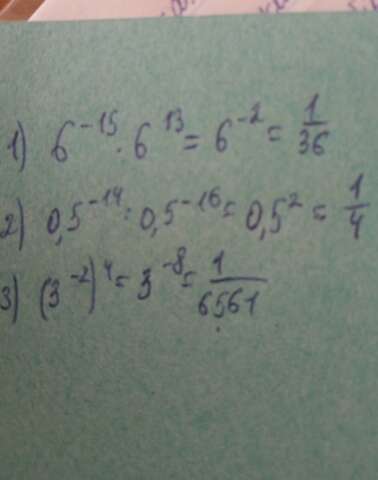 1) 6⁻¹⁵ · 6¹³ = 6⁻² = 1/36
2) 0,5⁻¹⁴ : 0,5⁻¹⁶ = 0,5² = 1/4
3) (3⁻²)⁴ = 3⁻⁸ = 1/6561